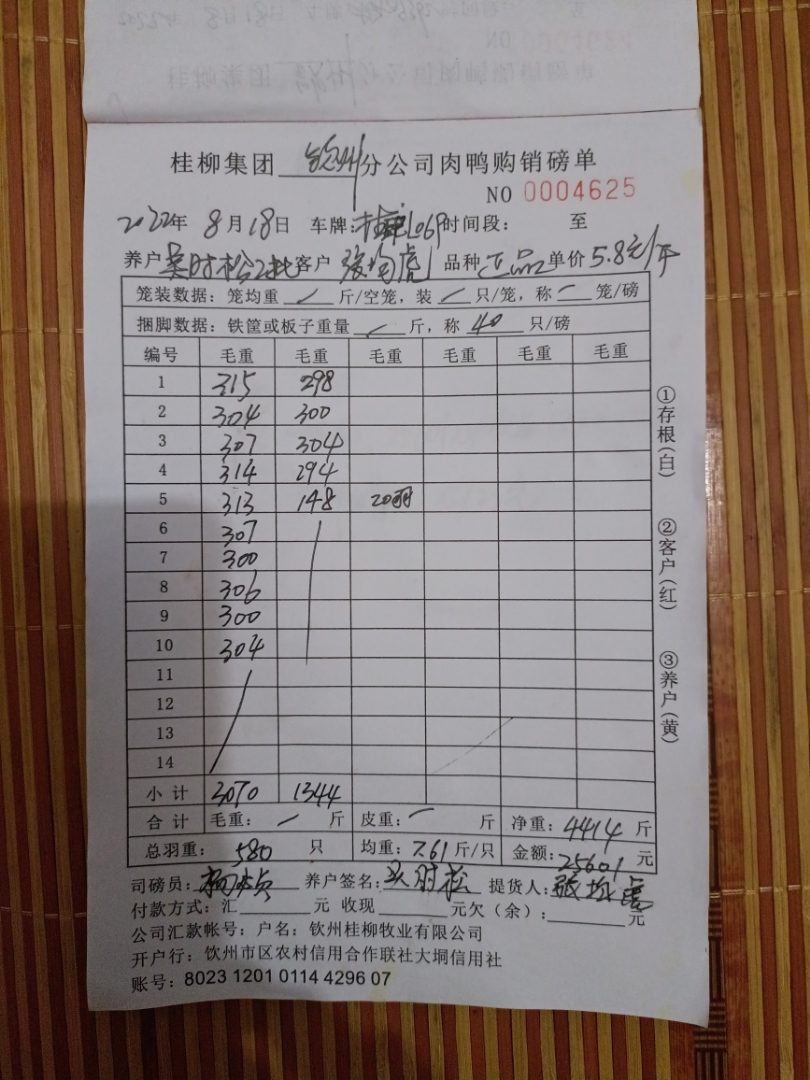 桂柳集团 钦州 分公司肉鸭购销磅单
NO 0004625
2022年 8月18日 车牌: 时间段: 至
养户 时松2批 客户 张 虎 品种 正品 单价 5.8元/斤
笼装数据: 笼均重 / 斤/空笼, 装 / 只/笼, 称 一 笼/磅
捆脚数据: 铁筐或板子重量 / 斤, 称 40 只/磅
编号 毛重 毛重 毛重 毛重 毛重 毛重
1 315 298
2 304 300
3 307 304
4 314 294
5 313 148 20羽
6 307
7 300
8 306
9 300
10 304
11
12
13
14
小计 3070 1344
合计 毛重: / 斤 皮重: 一 斤 净重: 4414 斤
总羽重: 580 只 均重: 7.61 斤/只 金额: 25601 元
司磅员: 养户签名: 时松 提货人: 张 虎
付款方式: 汇 元 收现 元欠(余): 元
公司汇款帐号: 户名: 钦州桂柳牧业有限公司
开户行: 钦州市区农村信用合作联社大垌信用社
账号: 8023 1201 0114 4296 07
①存根(白)
②客户(红)
③养户(黄)